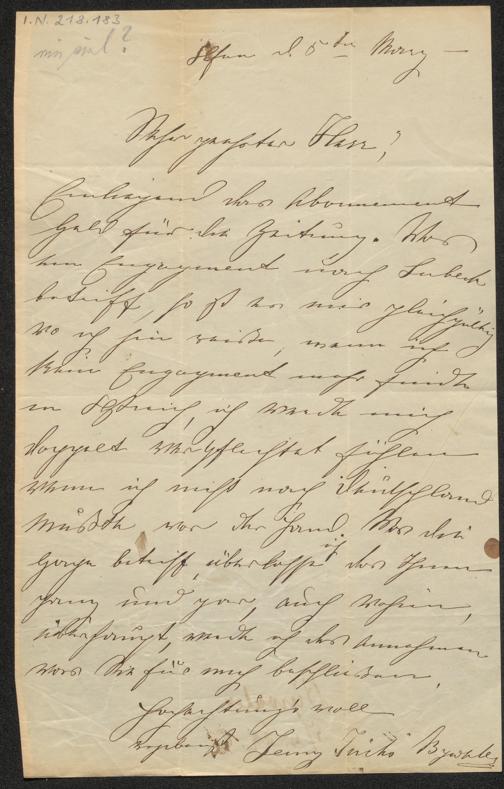 I.N. 218.183
d. 5ten März
Sehr geehrter Herr!
Einliegend das Abonnement
Geld für die Zeitung. Was
ein Engagement nach Lubeck
betrift, so ist es mir gleichgültig
wo ich hin reise, wenn ich
kein Engagement mehr finde
in Östreich, ich werde mich
doppelt verpflichtet fühlen
wenn ich nicht nach Deutschland
müsste vor der Hand. Was die
Gage betrift, überlasse ich das Ihnen
ganz und gar, auch wohin,
überhaupt, werde ich das annehmen
was Sie für mich beschließen.
Hochachtungs voll
ergebenst Jenny